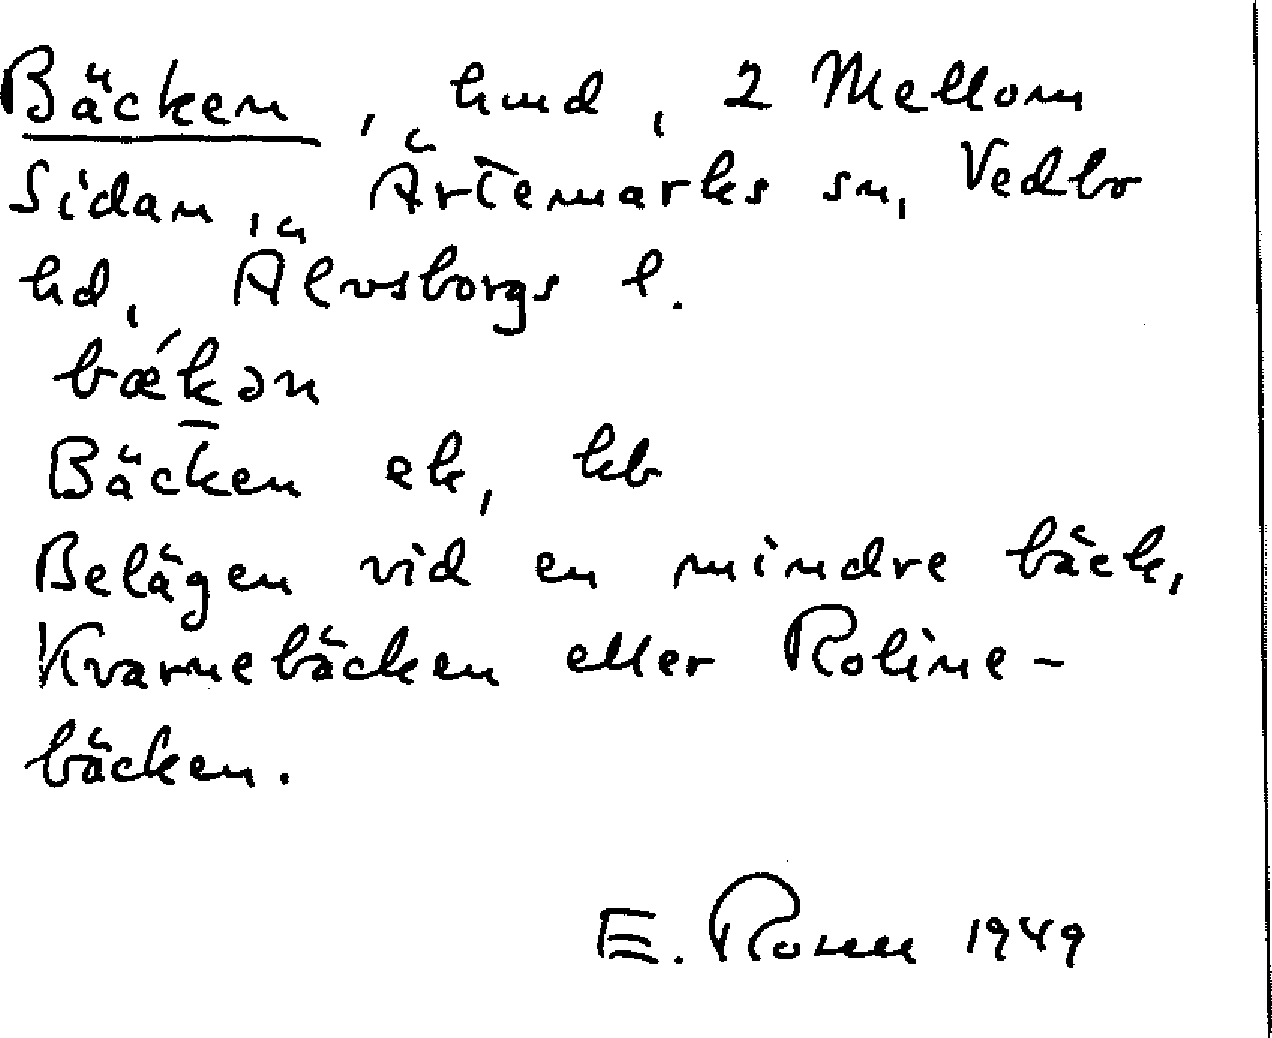 Bäcken, hmd, 2 Mellom
Sidan, Ärtemarks sn, Vedbo
hd, Älvsborgs l.
bǽkən
Bäcken ek, kb
Belägen vid en mindre bäck,
Kvarnebäcken eller Roline-
bäcken.
E. Ronn 1949